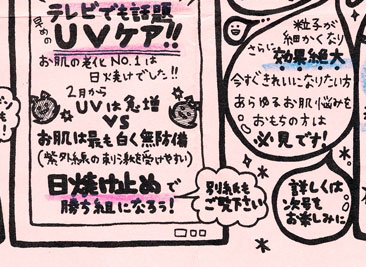 テレビでも話題
早めの
UVケア!!
お肌の老化 No.1は
日焼けでした!!
2月から
UVは急増
VS
お肌は最も白く無防備
(紫外線の刺激を受けやすい)
日焼け止めで
勝ち組になろう!
別紙も
ご覧下さい
粒子が
細かくなり
さらに
効果絶大
今すぐきれいになりたい方
あらゆるお肌悩みを
おもちの方は
必見です!
詳しくは
次号を
お楽しみに